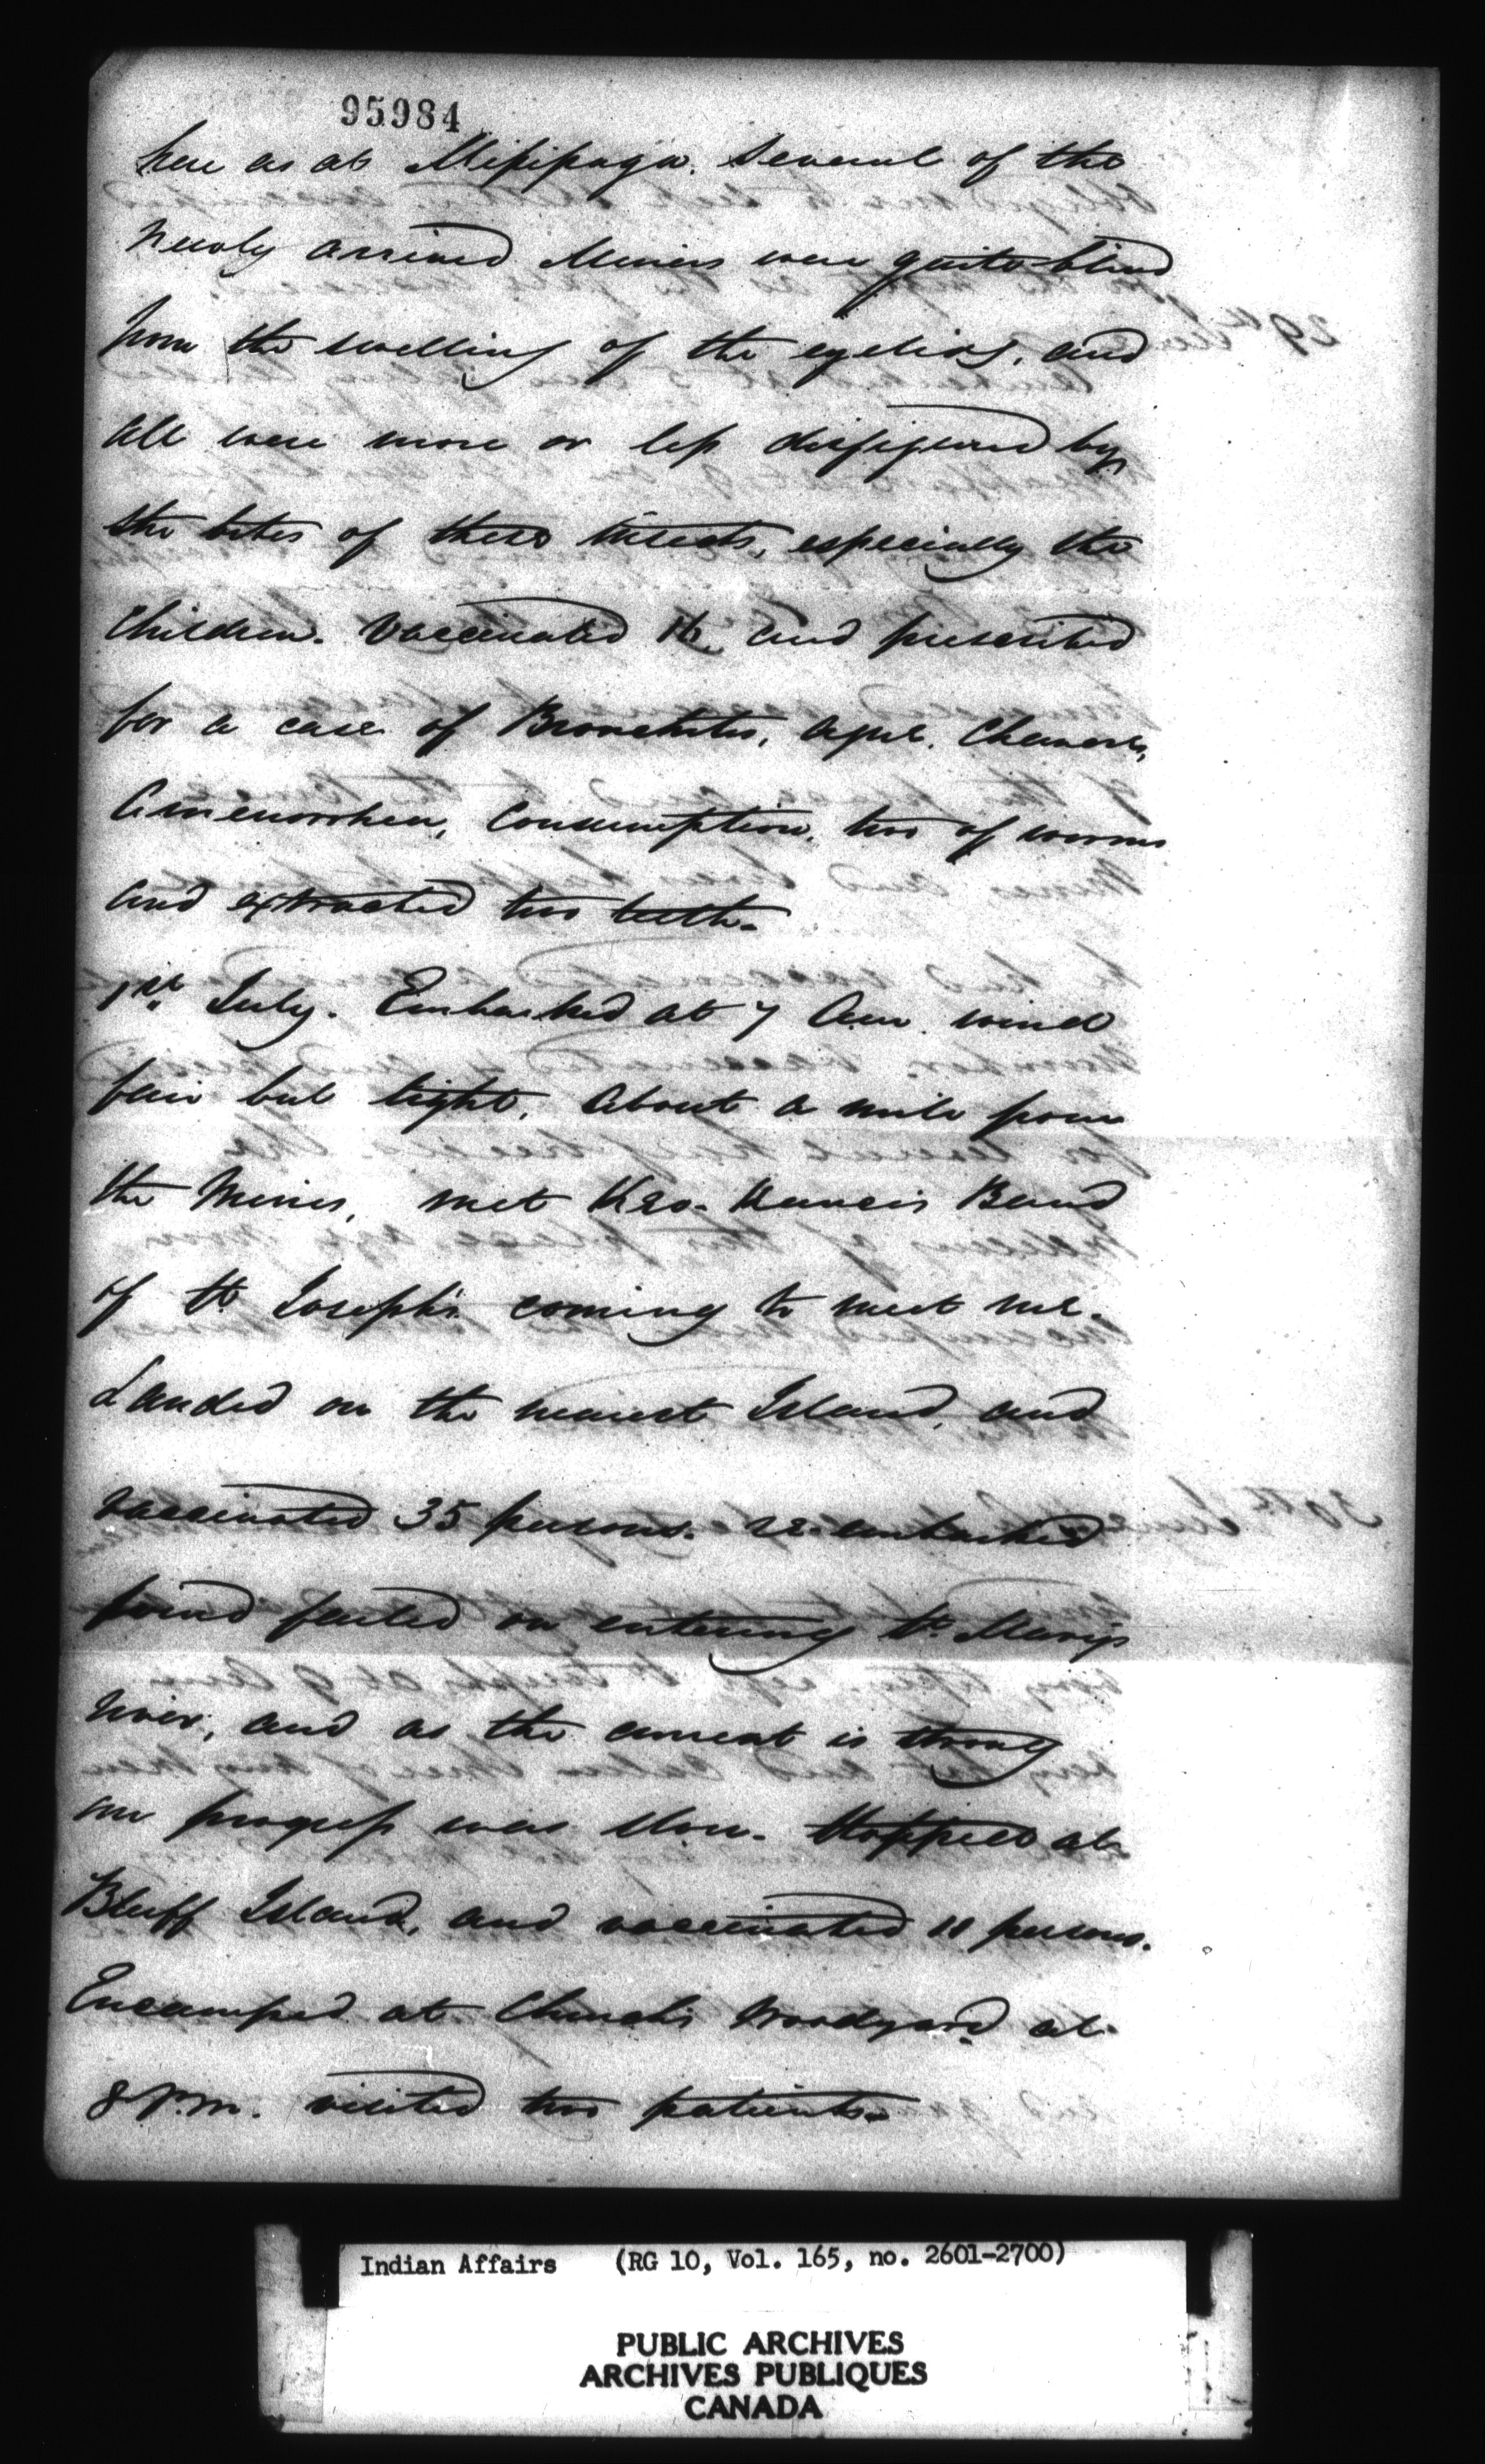 95984
here as at Missisauga. Several of the
newly arrived Miners were quite blind
from the swelling of the eyelids, and
all were more or less disfigured by
the bites of these insects, especially the
children. Vaccinated 16, and prescribed
for a case of Bronchitis, Ague,
Amenorrhea, Consumption, two of worms
and extracted two teeth.
1st July. Embarked at 7 Am. wind
fair but light. About a mile from
the Mines, met Band
of St Joseph's coming to meet me.
Landed on the nearest Island, and
vaccinated 35 persons. Re-embarked
wind failed on entering St. Mary's
river, and as the current is strong
our progress was slow. Stopped at
Bluff Island, and vaccinated 11 persons.
Encamped at Church's Woodyard at
8 P.m. visited two patients.
Indian Affairs (RG 10, Vol. 165, no. 2601-2700)
PUBLIC ARCHIVES
ARCHIVES PUBLIQUES
CANADA